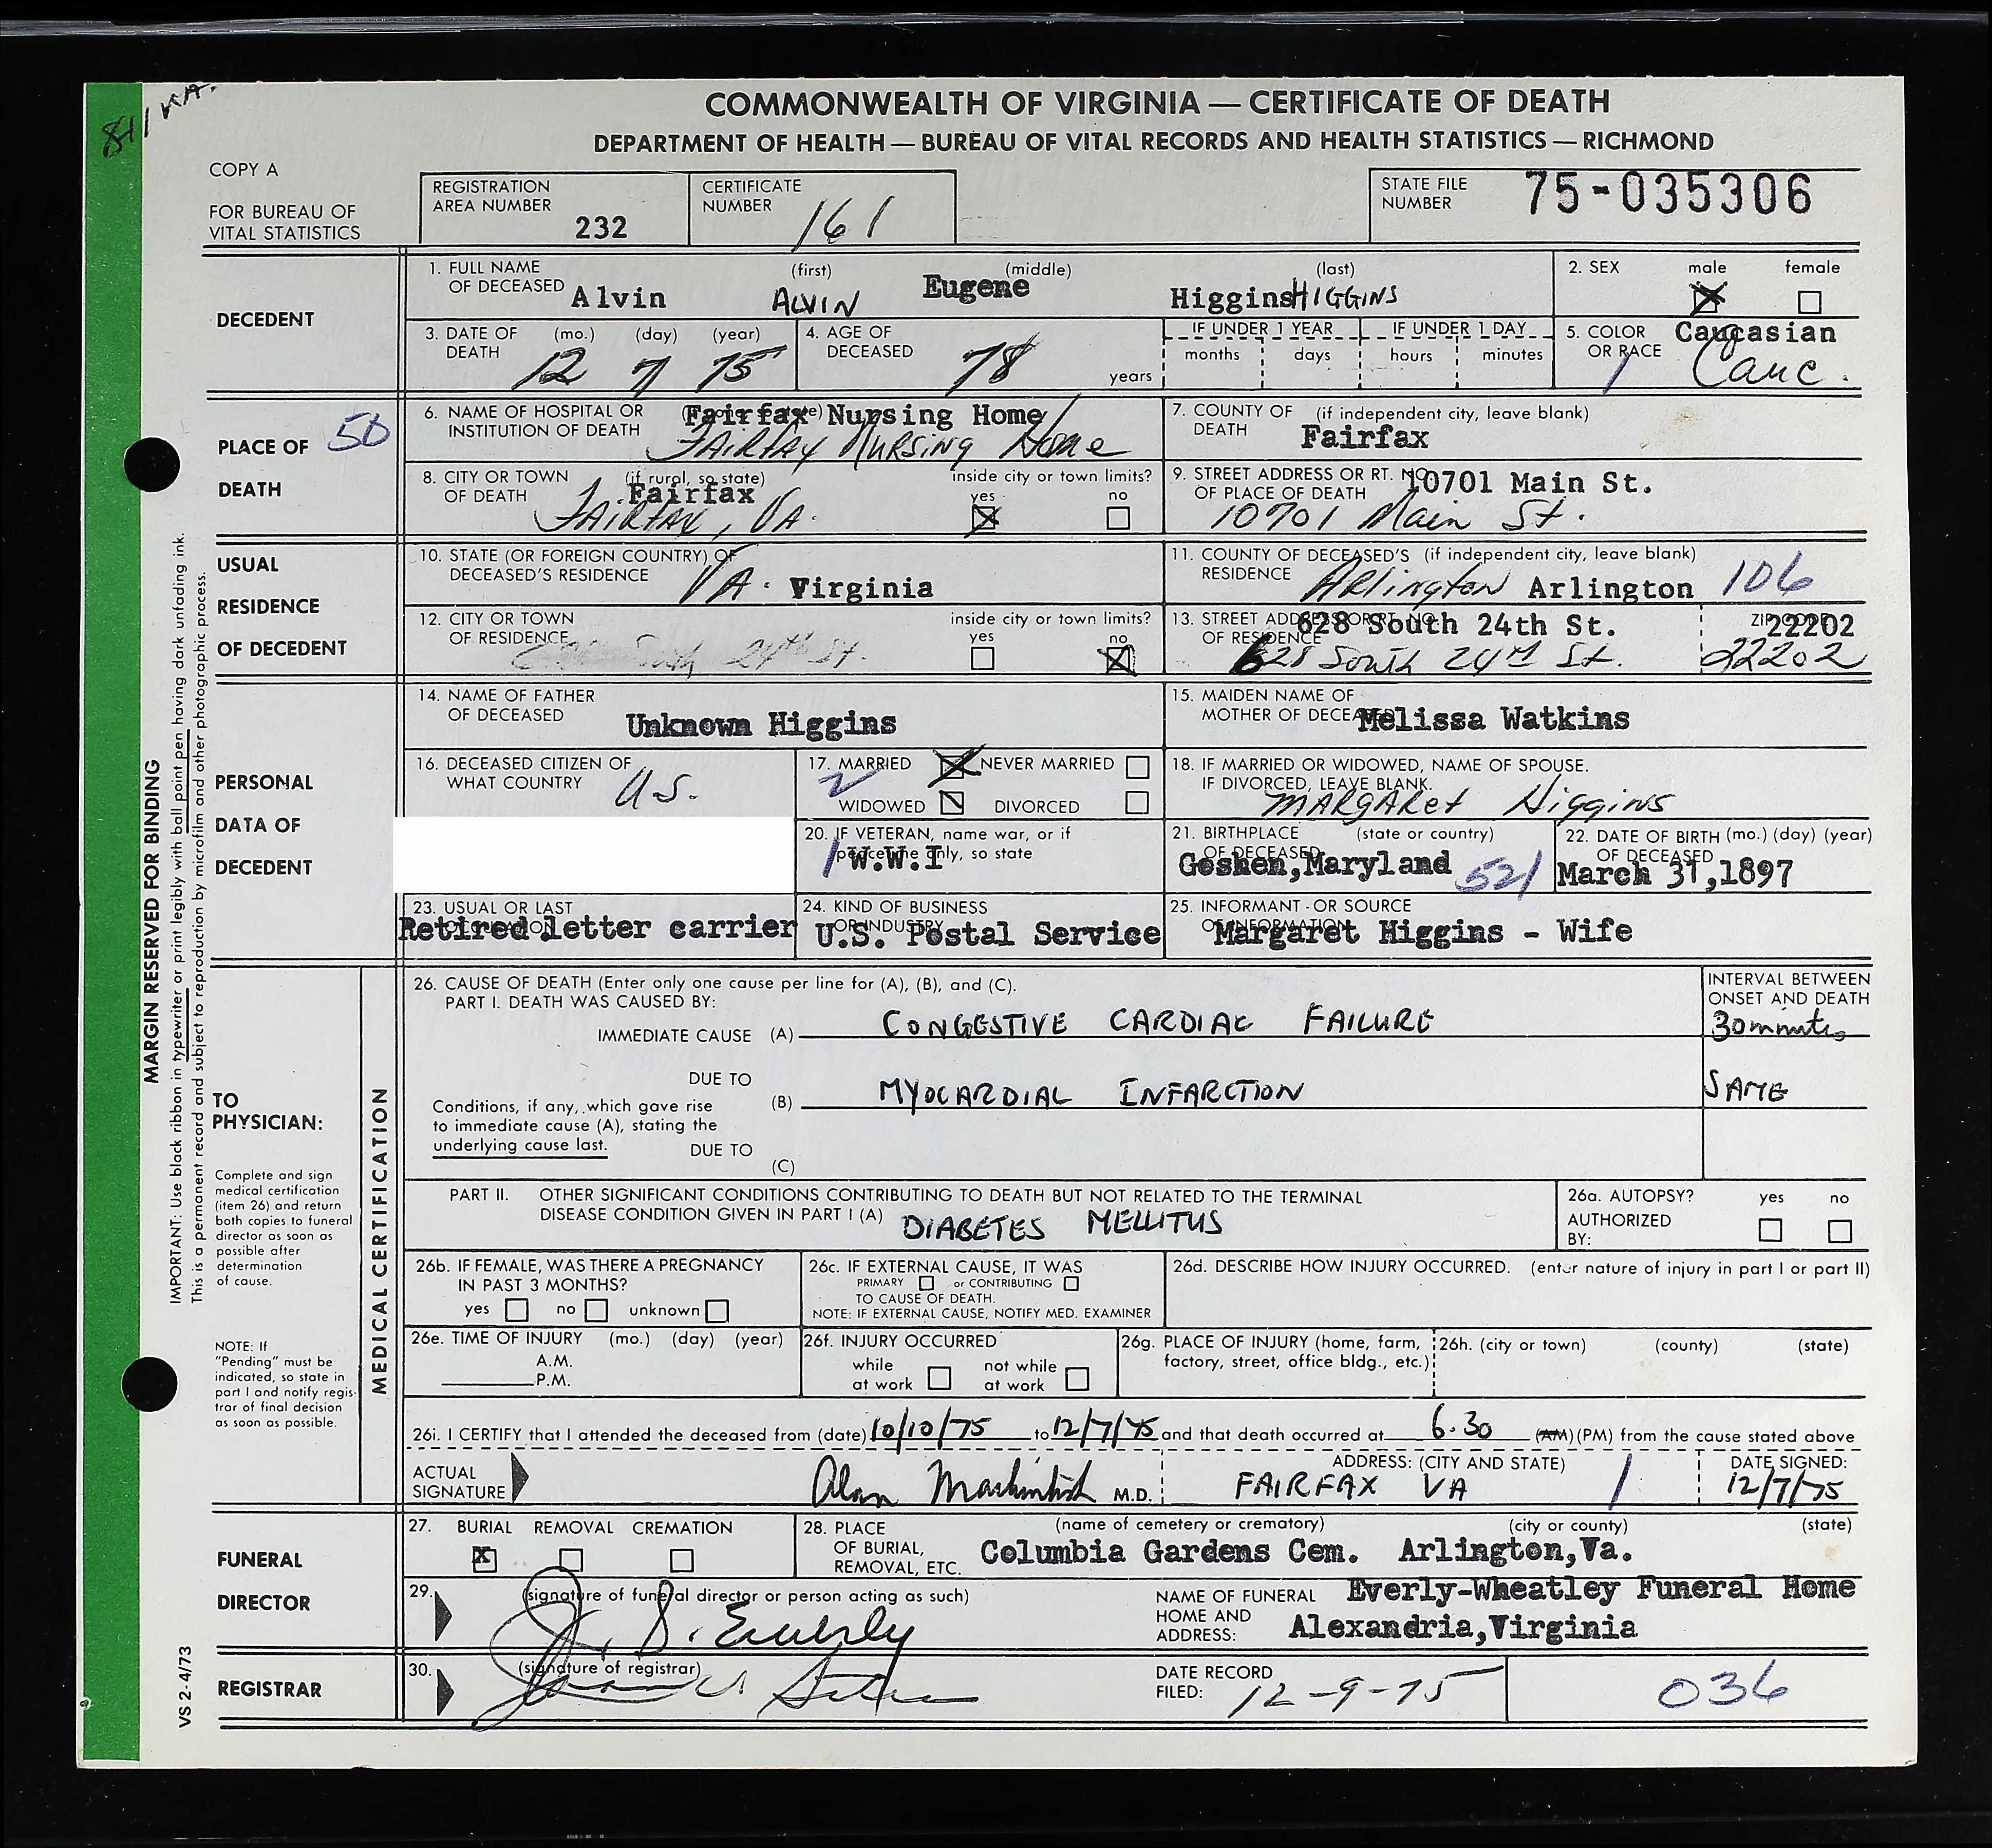 811 KA.
COMMONWEALTH OF VIRGINIA — CERTIFICATE OF DEATH
DEPARTMENT OF HEALTH — BUREAU OF VITAL RECORDS AND HEALTH STATISTICS — RICHMOND
COPY A
FOR BUREAU OF
VITAL STATISTICS
REGISTRATION
AREA NUMBER 232
CERTIFICATE
NUMBER 161
STATE FILE
NUMBER 75-035306
DECEDENT
1. FULL NAME (first) (middle) (last)
OF DECEASED Alvin ALVIN Eugene Higgins HIGGINS
2. SEX male female
3. DATE OF (mo.) (day) (year)
DEATH 12 7 75
4. AGE OF
DECEASED 78 years
IF UNDER 1 YEAR IF UNDER 1 DAY
months days hours minutes
5. COLOR Caucasian
OR RACE 1 Cauc.
PLACE OF 50
DEATH
6. NAME OF HOSPITAL OR Fairfax Nursing Home
INSTITUTION OF DEATH FAIRFAX NURSING Home
7. COUNTY OF (if independent city, leave blank)
DEATH Fairfax
8. CITY OR TOWN (if rural, so state) inside city or town limits?
OF DEATH Fairfax yes no
FAIRFAX, VA.
9. STREET ADDRESS OR RT. NO. 10701 Main St.
OF PLACE OF DEATH 10701 Main St.
USUAL
RESIDENCE
OF DECEDENT
10. STATE (OR FOREIGN COUNTRY) OF
DECEASED'S RESIDENCE VA. Virginia
11. COUNTY OF DECEASED'S (if independent city, leave blank)
RESIDENCE Arlington Arlington 106
12. CITY OR TOWN inside city or town limits?
OF RESIDENCE 24th St. yes no
13. STREET ADDRESS OR RT. NO. 628 South 24th St. ZIP CODE 22202
OF RESIDENCE 628 South 24th St. 22202
PERSONAL
DATA OF
DECEDENT
14. NAME OF FATHER
OF DECEASED Unknown Higgins
15. MAIDEN NAME OF
MOTHER OF DECEASED Melissa Watkins
16. DECEASED CITIZEN OF
WHAT COUNTRY U.S.
17. MARRIED NEVER MARRIED
2
WIDOWED DIVORCED
18. IF MARRIED OR WIDOWED, NAME OF SPOUSE.
IF DIVORCED, LEAVE BLANK.
MARGARET Higgins
20. IF VETERAN, name war, or if
peacetime only, so state
1 W.W.I
21. BIRTHPLACE (state or country)
OF DECEASED
Goshen, Maryland 521
22. DATE OF BIRTH (mo.) (day) (year)
OF DECEASED
March 31, 1897
23. USUAL OR LAST
Retired letter carrier
24. KIND OF BUSINESS
OR INDUSTRY
U.S. Postal Service
25. INFORMANT - OR SOURCE
OF INFORMATION
Margaret Higgins - Wife
TO
PHYSICIAN:
Complete and sign
medical certification
(item 26) and return
both copies to funeral
director as soon as
possible after
determination
of cause.
NOTE: If
"Pending" must be
indicated, so state in
part I and notify regis-
trar of final decision
as soon as possible.
MEDICAL CERTIFICATION
26. CAUSE OF DEATH (Enter only one cause per line for (A), (B), and (C).
PART I. DEATH WAS CAUSED BY:
INTERVAL BETWEEN
ONSET AND DEATH
IMMEDIATE CAUSE (A) CONGESTIVE CARDIAC FAILURE 30 minutes
DUE TO
(B) MYOCARDIAL INFARCTION SAME
Conditions, if any, which gave rise
to immediate cause (A), stating the
underlying cause last. DUE TO
(C)
PART II. OTHER SIGNIFICANT CONDITIONS CONTRIBUTING TO DEATH BUT NOT RELATED TO THE TERMINAL
DISEASE CONDITION GIVEN IN PART I (A) DIABETES MELLITUS
26a. AUTOPSY? yes no
AUTHORIZED
BY:
26b. IF FEMALE, WAS THERE A PREGNANCY
IN PAST 3 MONTHS?
yes no unknown
26c. IF EXTERNAL CAUSE, IT WAS
PRIMARY or CONTRIBUTING
TO CAUSE OF DEATH.
NOTE: IF EXTERNAL CAUSE, NOTIFY MED. EXAMINER
26d. DESCRIBE HOW INJURY OCCURRED. (enter nature of injury in part I or part II)
26e. TIME OF INJURY (mo.) (day) (year)
A.M.
P.M.
26f. INJURY OCCURRED
while not while
at work at work
26g. PLACE OF INJURY (home, farm,
factory, street, office bldg., etc.)
26h. (city or town) (county) (state)
26i. I CERTIFY that I attended the deceased from (date) 10/10/75 to 12/7/75 and that death occurred at 6.30 (AM) (PM) from the cause stated above
ACTUAL
SIGNATURE Alan Mackintosh M.D.
ADDRESS: (CITY AND STATE)
FAIRFAX VA 1
DATE SIGNED:
12/7/75
FUNERAL
DIRECTOR
27. BURIAL REMOVAL CREMATION
X
28. PLACE (name of cemetery or crematory) (city or county) (state)
OF BURIAL,
REMOVAL, ETC. Columbia Gardens Cem. Arlington, Va.
29. (signature of funeral director or person acting as such)
J. B. Everly
NAME OF FUNERAL Everly-Wheatley Funeral Home
HOME AND
ADDRESS: Alexandria, Virginia
REGISTRAR
30. (signature of registrar)
DATE RECORD
FILED: 12-9-75
036
MARGIN RESERVED FOR BINDING
IMPORTANT: Use black ribbon in typewriter or print legibly with ball point pen having dark unfading ink.
This is a permanent record and subject to reproduction by microfilm and other photographic process.
VS 2-4/73